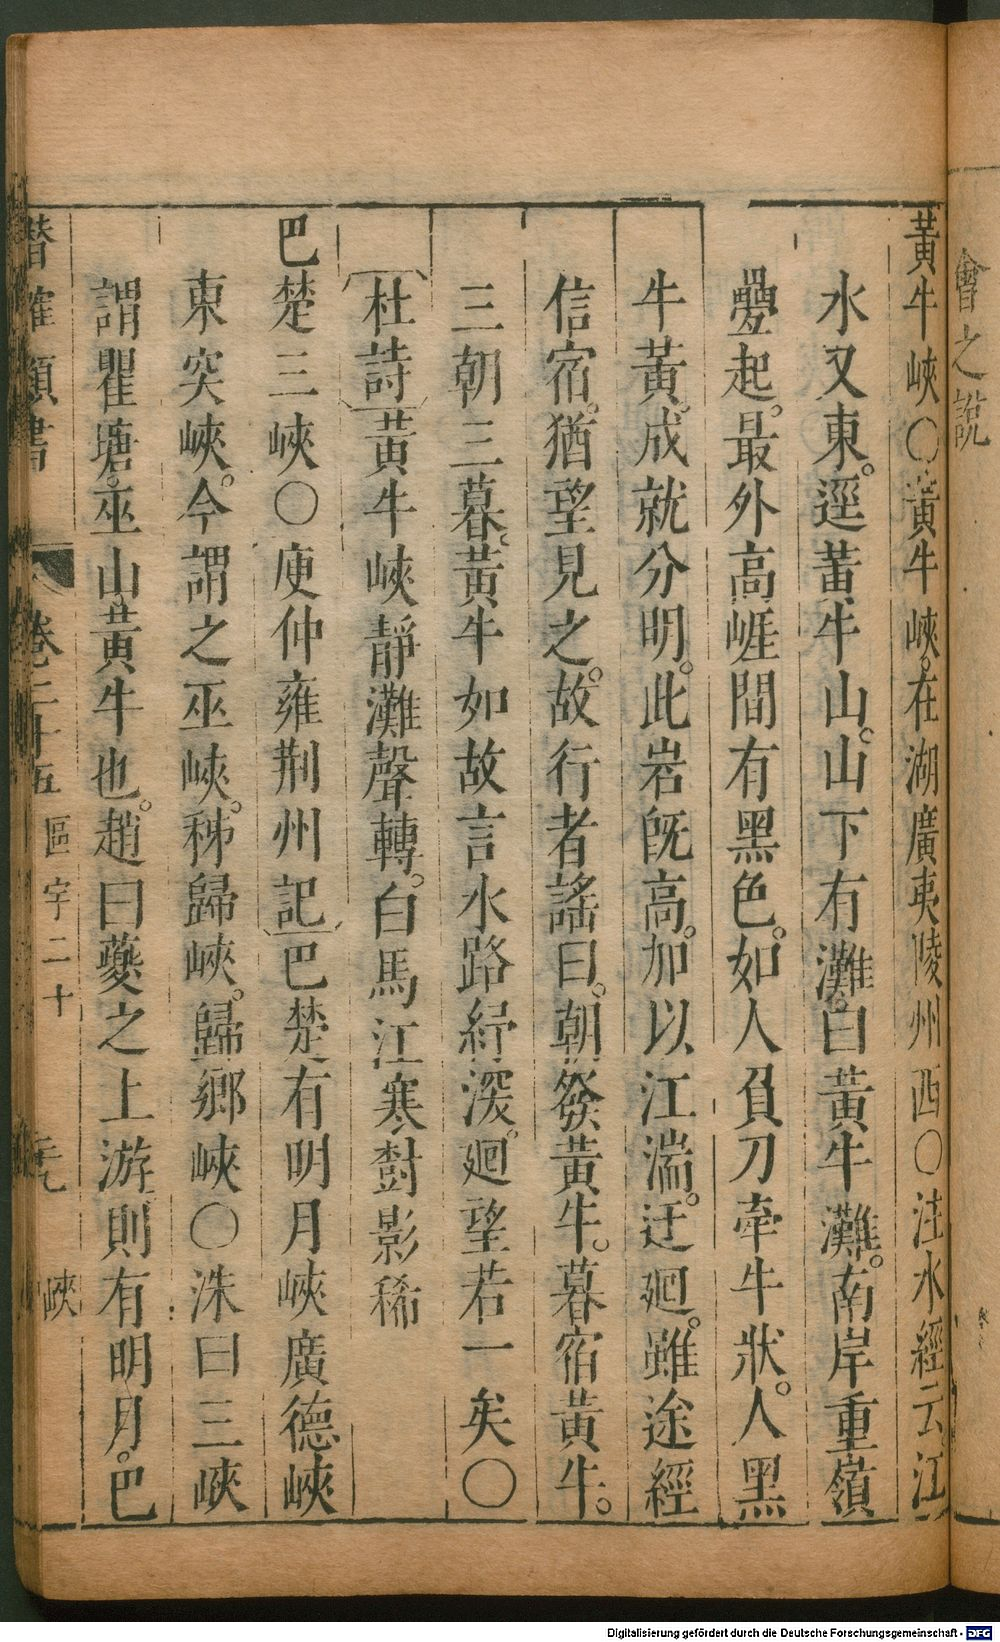 會之說
黃牛峽○黃牛峽。在湖廣夷陵州西○注水經云江
水又東。逕黃牛山。山下有灘。曰黃牛灘。南岸重嶺
疊起。最外高崕間有黑色。如人負刀牽牛狀。人黑
牛黃。成就分明。此岩旣高。加以江湍。迂廻。雖途經
信宿。猶望見之。故行者謠曰。朝發黃牛。暮宿黃牛。
三朝三暮。黃牛如故言水路紆深。廻望若一矣○
杜詩黃牛峽靜灘聲轉。白馬江寒對影稀
巴楚三峽○庾仲雍荆州記巴楚有明月峽廣德峽
東突峽。今謂之巫峽。秭歸峽。歸鄉峽○洙曰三峽
謂瞿塘。巫山黃牛也。趙曰夔之上游則有明月。巴
潛確類書 卷二十五 區宇二十 峽
Digitalisierung gefördert durch die Deutsche Forschungsgemeinschaft - DFG